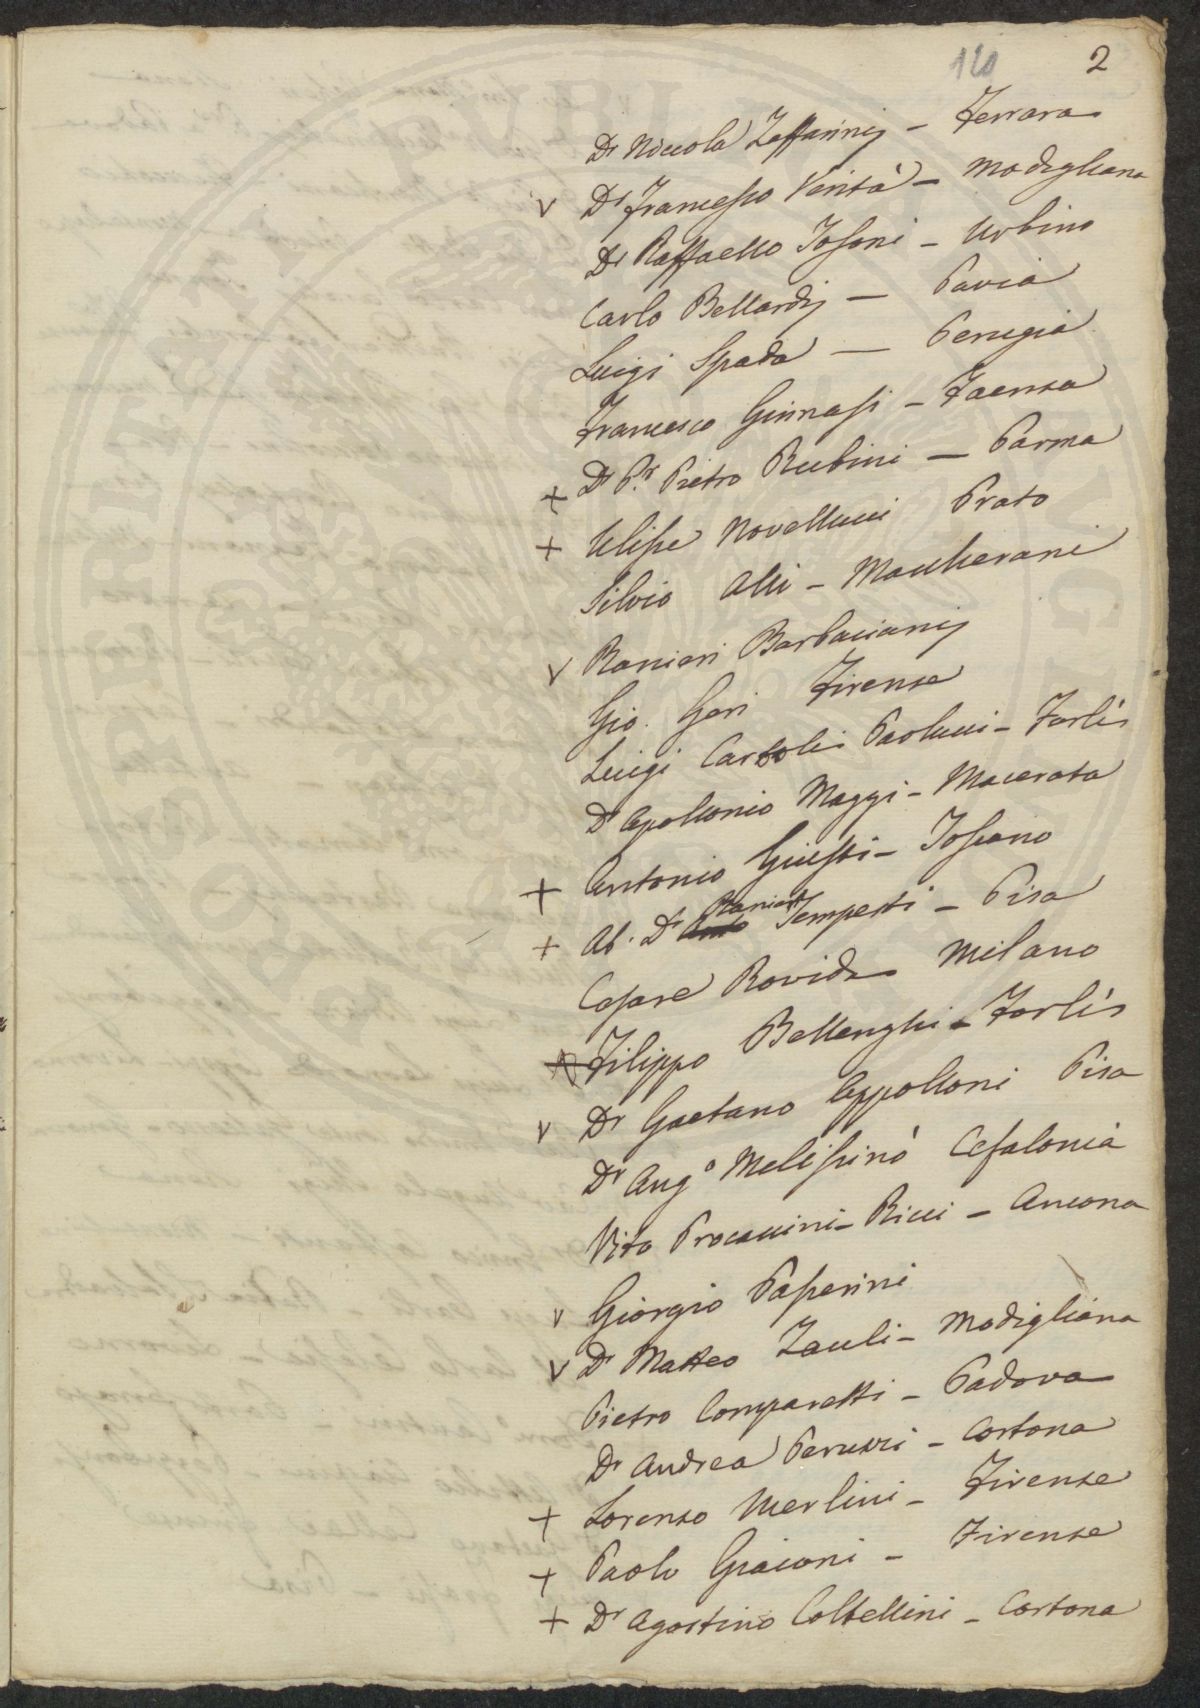 120 2
Dr Niccola Zaffarinj - Ferrara
v Dr Francesco Verità - Modigliana
Dr Raffaello Tosoni - Urbino
Carlo Bellardj - Pavia
Luigi Spada - Perugia
Francesco Ginnasi - Faenza
+ Dr P.r Pietro Rubini - Parma
+ Ulisse Novellucci Prato
Silvio Alli - Maccherani
v Ranieri Barbacianj
Gio. Geri Firenze
Luigi Paolucci - Forlì
Dr Apollonio Maggi - Macerata
+ Antonio Giusti - Toscano
+ Ab. Dr Ranieri Tempesti - Pisa
Cesare Rovida Milano
Filippo Bellenghi - Forlì
v Dr Gaetano Appolloni Pisa
Dr Ang.o Melissinò Cefalonia
Vito Procaccini - Ricci - Ancona
v Giorgio Paperini
v Dr Matteo Zauli - Modigliana
Pietro Comparetti - Padova
Dr Andrea Peruzzi - Cortona
+ Lorenzo Merlini - Firenze
+ Paolo Graiconi - Firenze
+ Dr Agostino Coltellini - Cortona